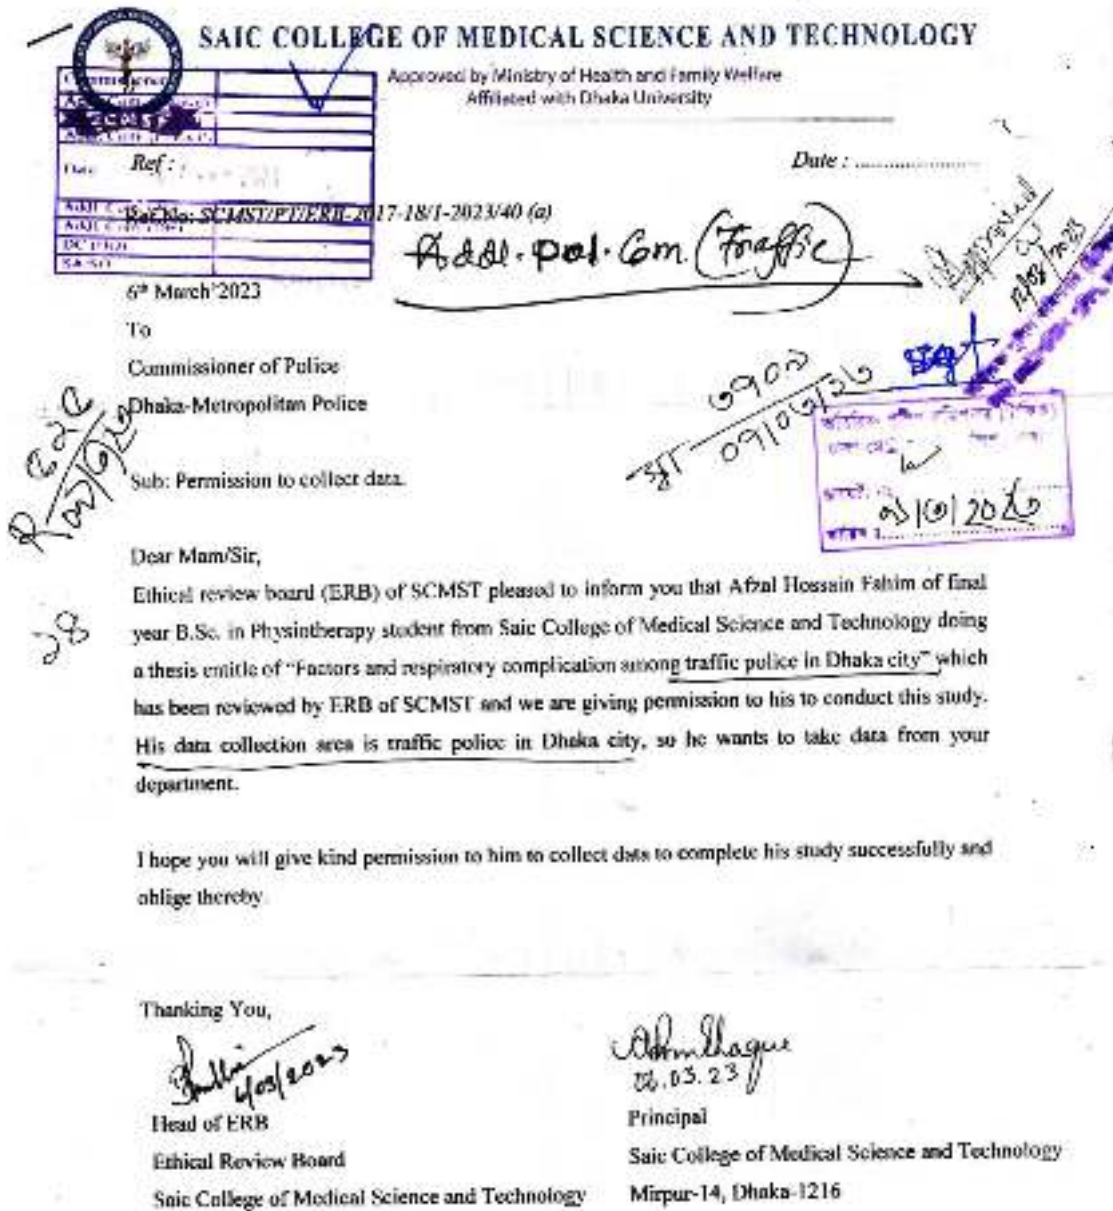 SAIC COLLEGE OF MEDICAL SCIENCE AND TECHNOLOGY
Approved by Ministry of Health and Family Welfare
Affiliated with Dhaka University
Date
Ref :
Date : ....................
Ref No: SCMST/PT/ERB-2017-18/1-2023/40 (a)
Addl. Pol. Com (Traffic)
Approved
6th March'2023
To
Commissioner of Police
Dhaka-Metropolitan Police
Sub: Permission to collect data.
Dear Mam/Sir,
Ethical review board (ERB) of SCMST pleased to inform you that Afzal Hossain Fahim of final
year B.Sc. in Physiotherapy student from Saic College of Medical Science and Technology doing
a thesis entitle of "Factors and respiratory complication among traffic police in Dhaka city" which
has been reviewed by ERB of SCMST and we are giving permission to his to conduct this study.
His data collection area is traffic police in Dhaka city, so he wants to take data from your
department.
I hope you will give kind permission to him to collect data to complete his study successfully and
oblige thereby.
Thanking You,
6/03/2023
06.03.23
Head of ERB
Principal
Ethical Review Board
Saic College of Medical Science and Technology
Saic College of Medical Science and Technology
Mirpur-14, Dhaka-1216